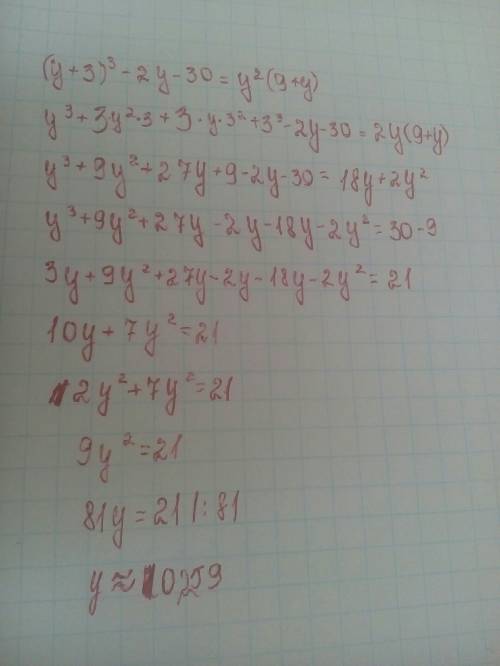 (y+3)³-2y-30=y²(9+y)
y³+3y²·3+3·y·3²+3³-2y-30=2y(9+y)
y³+9y²+27y+9-2y-30=18y+2y²
y³+9y²+27y-2y-18y-2y²=30-9
3y+9y²+27y-2y-18y-2y²=21
10y+7y²=21
2y²+7y²=21
9y²=21
81y=21 |:81
y≈0,259